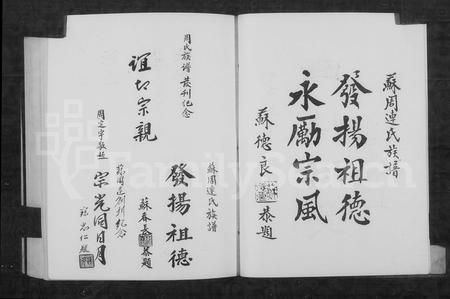 蘇周連氏族譜
發揚祖德
永勵宗風
蘇德良
恭題
周氏族譜發刊紀念
誼切宗親
周定宇敬題
蘇周連氏族譜
發揚祖德
蘇春長
恭題
蘇周連創刊紀念
宗光同日月
FamilySearch